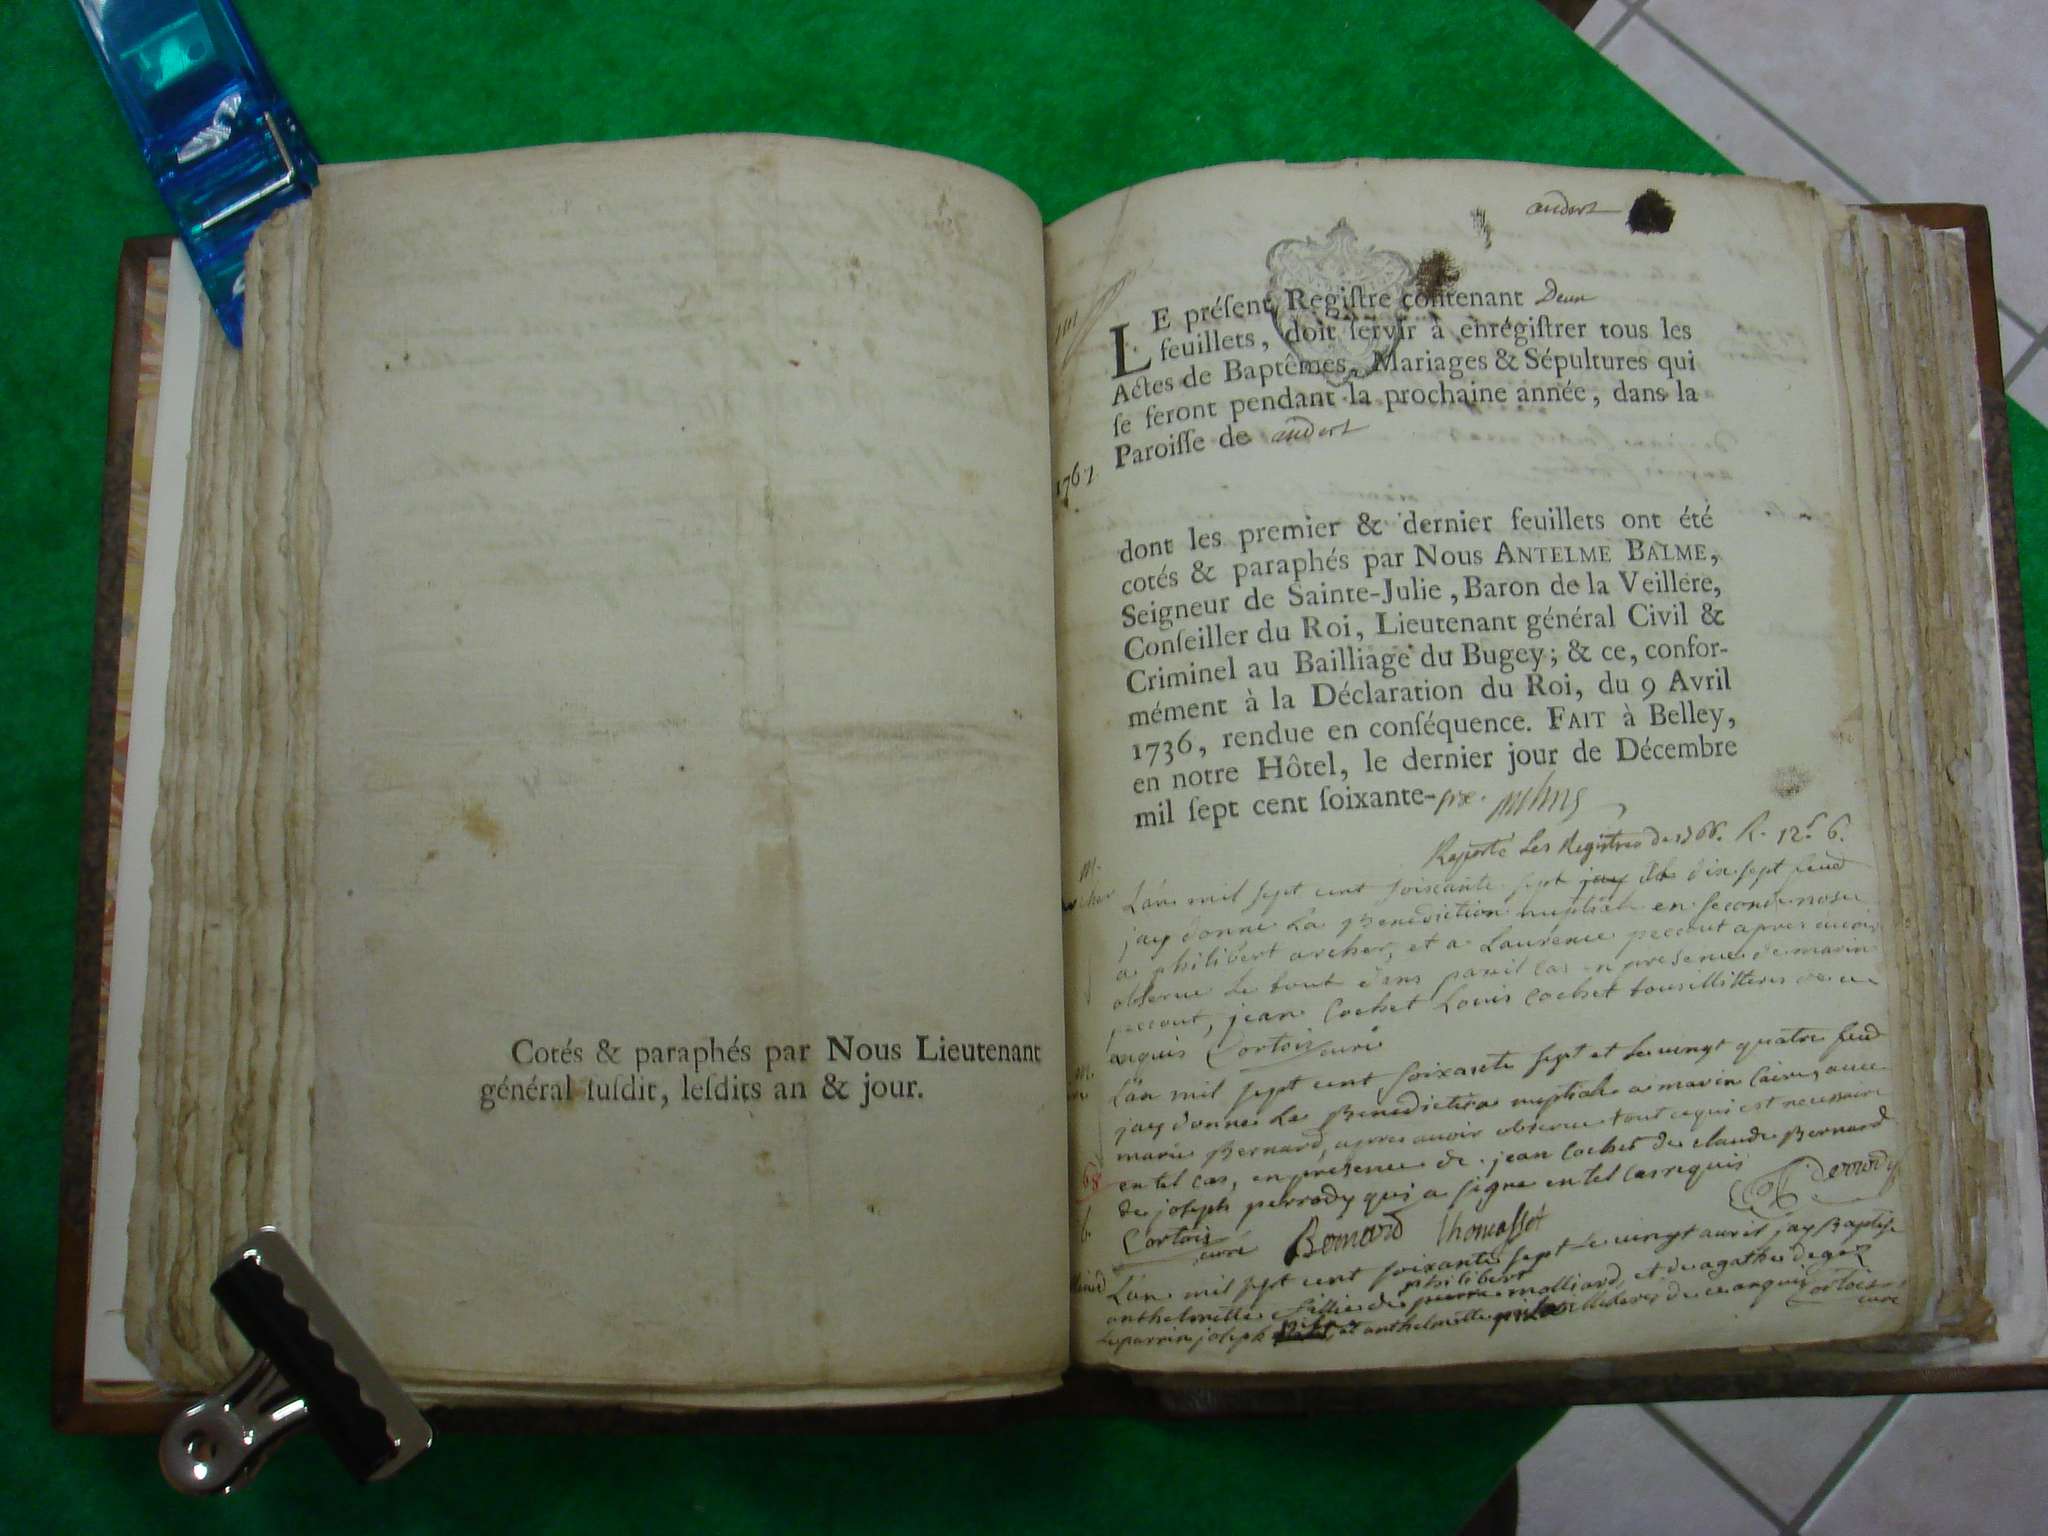 Cotés & paraphés par Nous Lieutenant
général susdit, lesdits an & jour.
andert
LE présent Registre contenant Deux
feuillets, doit servir à enrégistrer tous les
Actes de Baptêmes, Mariages & Sépultures qui
se feront pendant la prochaine année, dans la
Paroisse de andert
1767
dont les premier & dernier feuillets ont été
cotés & paraphés par Nous ANTELME BALME,
Seigneur de Sainte-Julie, Baron de la Veillere,
Conseiller du Roi, Lieutenant général Civil &
Criminel au Bailliage du Bugey; & ce, confor-
mément à la Déclaration du Roi, du 9 Avril
1736, rendue en conséquence. FAIT à Belley,
en notre Hôtel, le dernier jour de Décembre
mil sept cent soixante-six.
Raporté Les Registres de 1766. R. 12ˢ 6.
m.
L'an mil sept cent soixante sept jay le dix sept feud
jay donne La Benediction nuptiale en seconde nose
a philibert archer, et a Laurence pecout apres avoir
observe le tout dans pareil cas en presence de marin
peccout, jean Cochet Louis Cochet tous illitteres de ce
enquis Cortois curé
L'an mil sept cent soixante sept et le vingt quatre feud
jay donne La Benediction nuptiale a marin Caire, avec
marie Bernard, apres avoir observe tout ce qui est necessaire
en tel cas, en presence de jean Cochet de claude Bernard
de joseph perrody qui a signe en tel cas requis
Cortois curé Bernard thomasset perrody
b.
L'an mil sept cent soixante sept Le vingt avril jay Baptise
anthelmette fillie de philibert molliard, et de agathe degex
Le parrin joseph et anthelmette illiteres de ce enquis Cortois curé